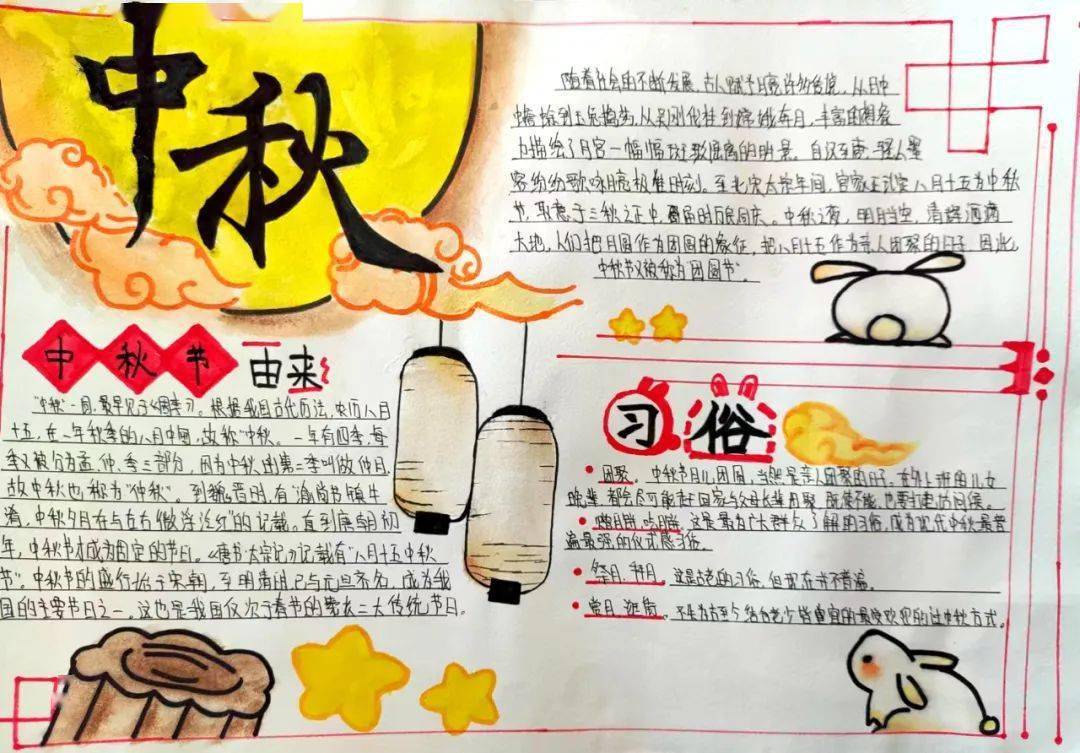 中秋
中秋节 由来
"中秋"一词,最早见于《周礼》。根据我国古代历法,农历八月
十五,在一年秋季的八月中旬,故称"中秋。一年有四季,每
季又被分为孟、仲、季三部分,因为中秋 第二季叫做仲月
故中秋也称为"仲秋"。到魏晋时,有"谕尚书镇牛
渚,中秋夕月在与左右微 泛江"的记载。直到唐朝初
年,中秋节才成为固定的节日。《唐书太宗记》记载有"八月十五中秋
节"。中秋节的盛行始于宋朝,至明清时,已与元旦齐名,成为我
国的主要节日之一。这也是我国仅次于春节的第二大传统节日。
随着社会的不断发展,古人赋予月亮许多 ,从月中
蟾蜍到玉兔捣药,从吴刚伐桂到嫦娥奔月,丰富的想象
力描绘了月宫一幅幅斑驳 离的 景。自汉至唐,骚人墨
客纷纷歌咏月亮 。至北宋太宗年间,官家正式定八月十五为中秋
节,取意于三秋之正中,届时万民同庆。中秋之夜,明月当空,清辉洒满
大地,人们把月圆作为团圆的象征,把八月十五作为亲人团聚的日子,因此,
中秋节又被称为"团圆节"。
习俗
团聚。中秋节月儿团圆,当然是亲人团聚的日子。在外上班的儿女
晚辈,都会尽可能 回家与父母长辈团聚,既使不能,也要打电话问候。
月饼,吃月饼,这是最为广大群众了解的习俗,成为现代中秋最普
遍最强的仪式感习俗。
祭月、拜月。这是古老的习俗,但现在并不普遍。
赏月、逛街。 老少皆宜的最受欢迎的过中秋方式。